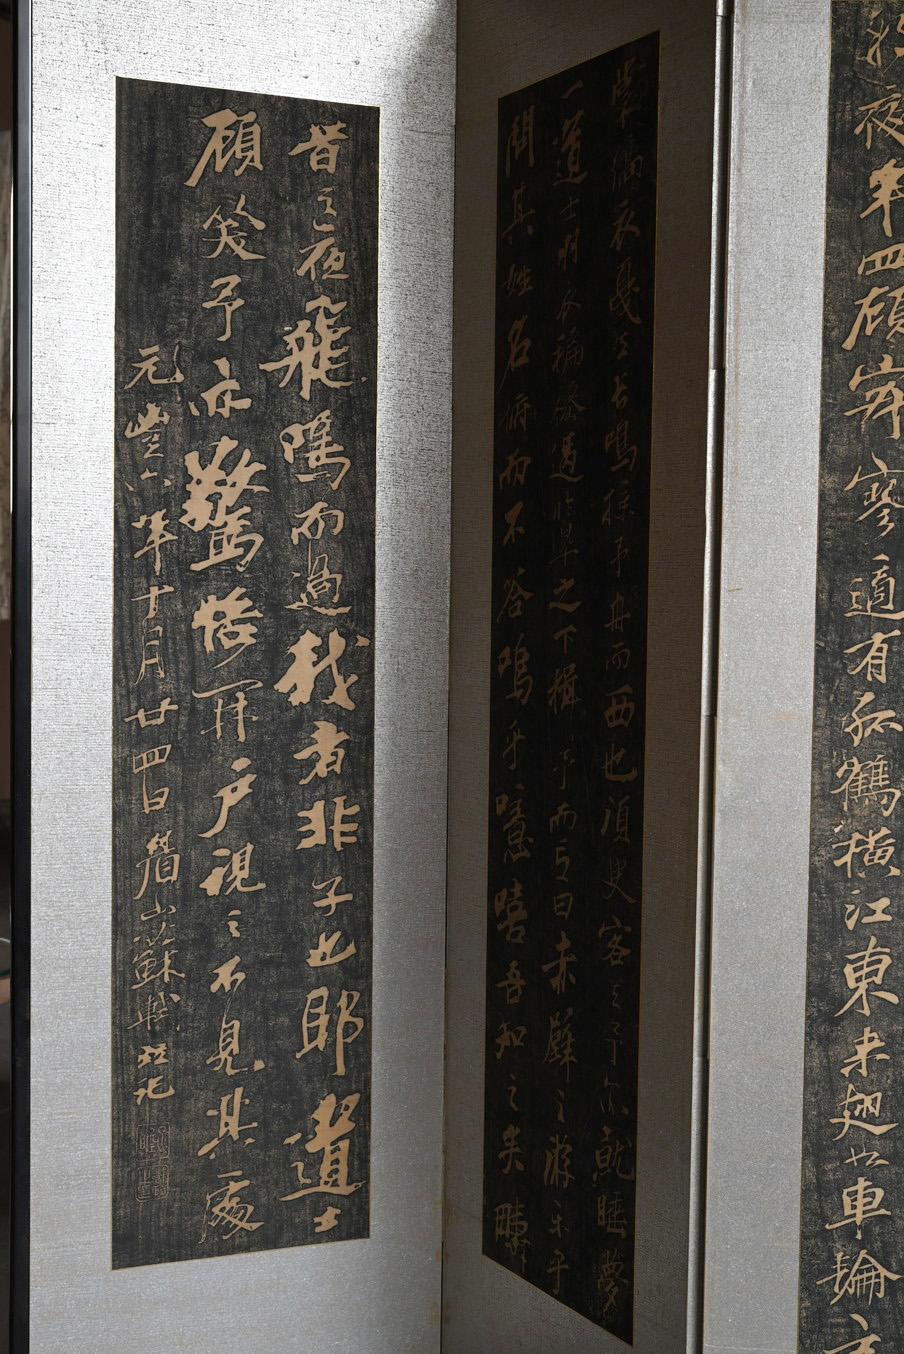 夜半四顧寂寥適有孤鶴橫江東来翅如車輪
裳縞衣戛然長鳴掠予舟而西也須臾客去予亦就睡夢
一道士羽衣翩僊過臨皋之下揖予而言曰赤壁之游樂乎
問其姓名俯而不答嗚乎噫嘻吾知之矣疇
昔之夜飛鳴而過我者非子也耶道士
顧笑予亦驚悟開户視之不見其處
元豐六年十月廿四日眉山蘇軾